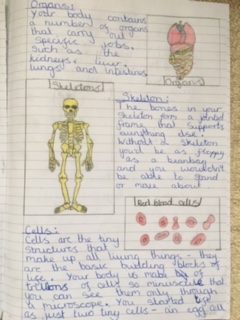 Organs:
Your body contains
a number of organs
that carry out
specific jobs.
Such as the
kidneys, liver,
lungs and intestines
Organs
Skeletons
Skeleton:
The bones in your
skeleton form a jointed
frame that supports
everything else.
Without a skeleton
you'd be as floppy
as a beanbag
and you wouldn't
be able to stand
or move about
Red blood cells
Cells:
Cells are the tiny
structures that
make up all living things - they
are the basic building blocks of
life. Your body is made up of
trillions of cells so minuscule that
you can see them only through
a microscope. You started life
as just two tiny cells - an egg